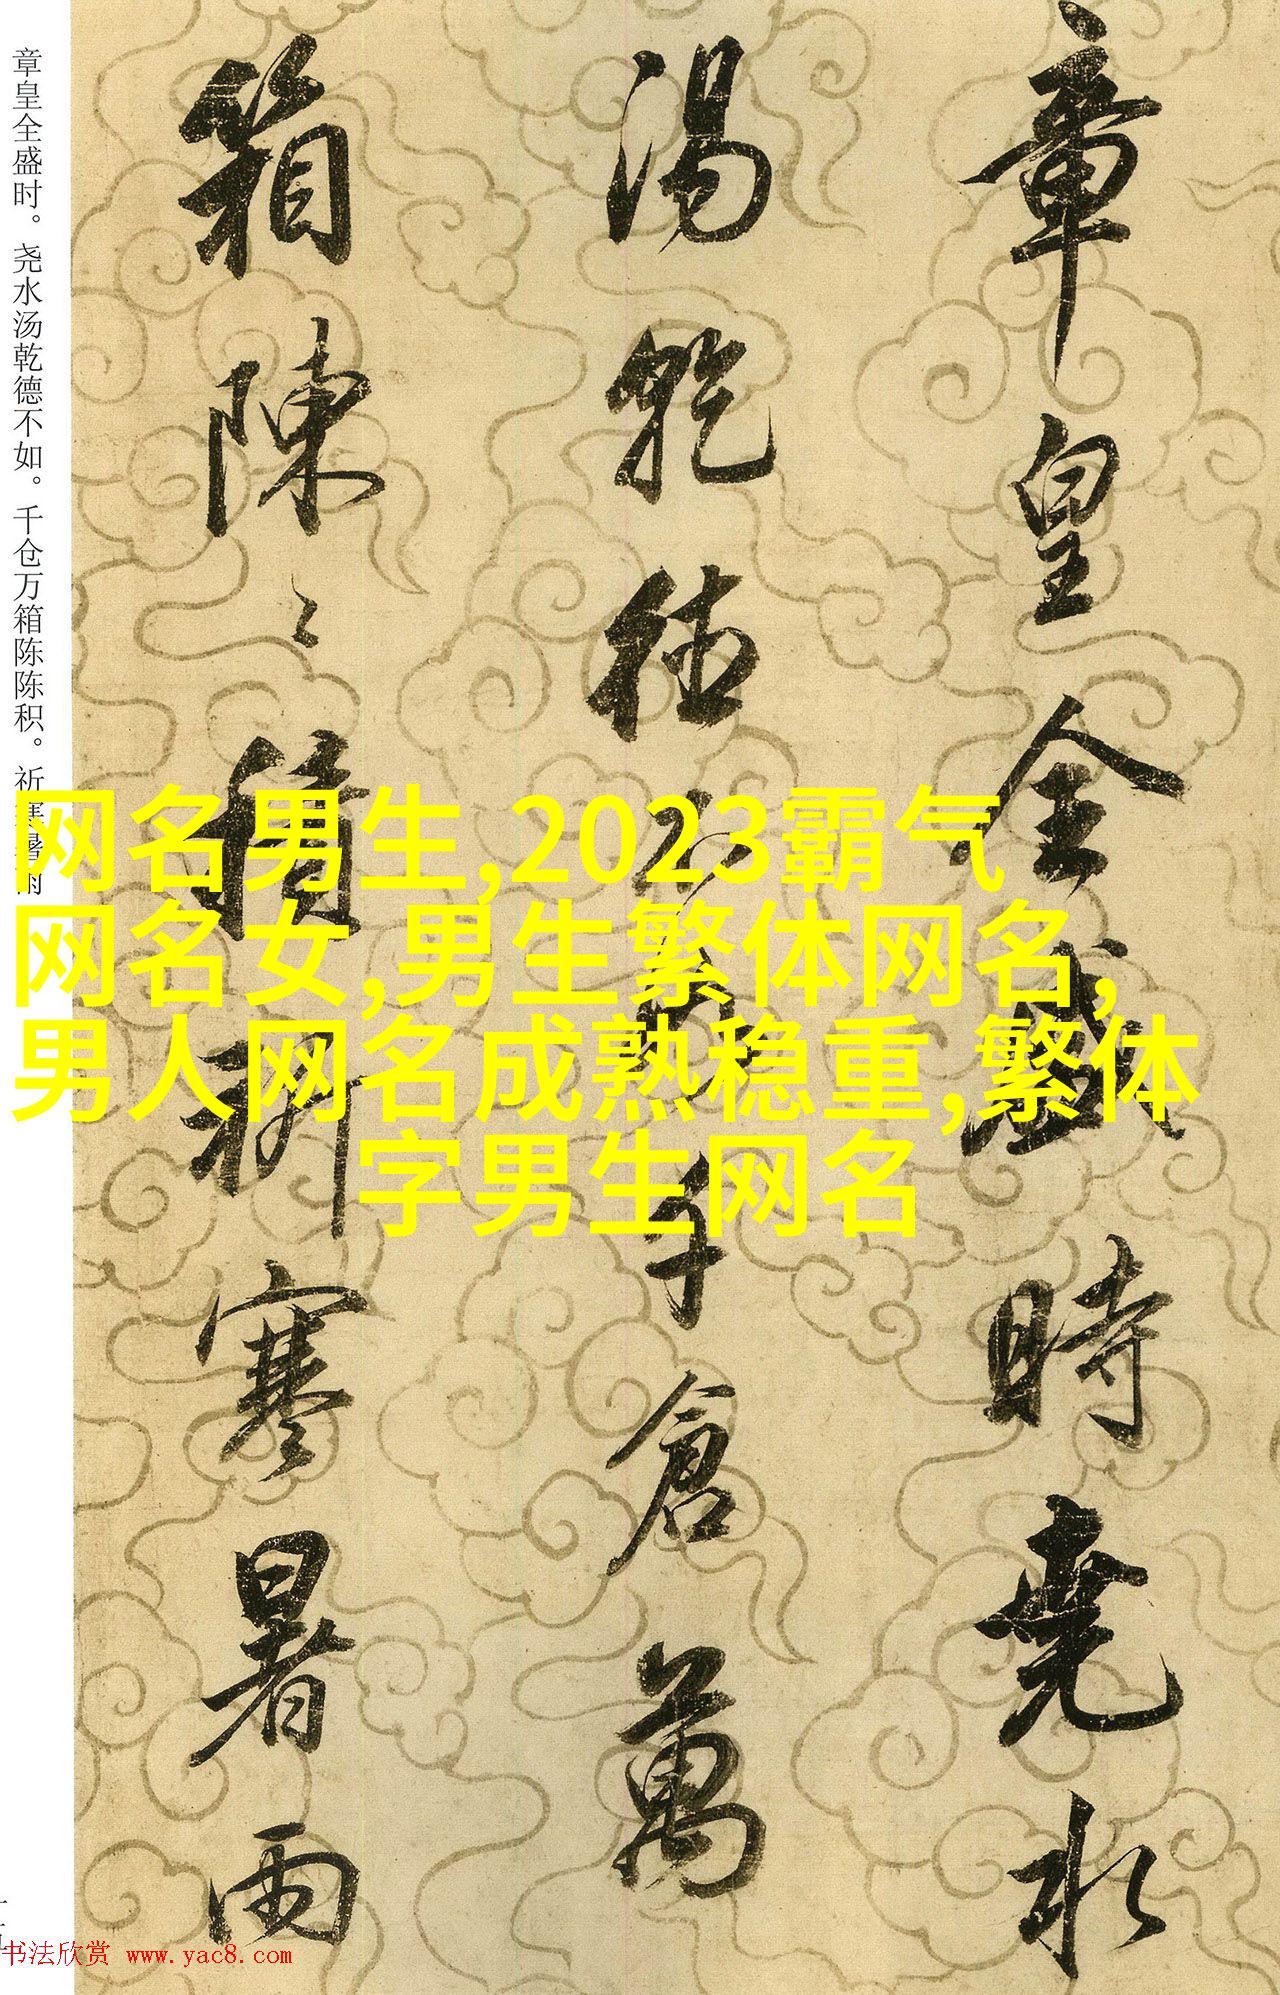 章皇全盛時堯水
湯乾德不如千倉萬
箱陳〻積祈寒暑雨
章皇全盛时。尧水汤乾德不如。千仓万箱陈陈积。祈寒暑雨
网名男生,2023霸气
网名女,男生繁体网名,
男人网名成熟稳重,繁体
字男生网名
书法欣赏 www.yac8.com